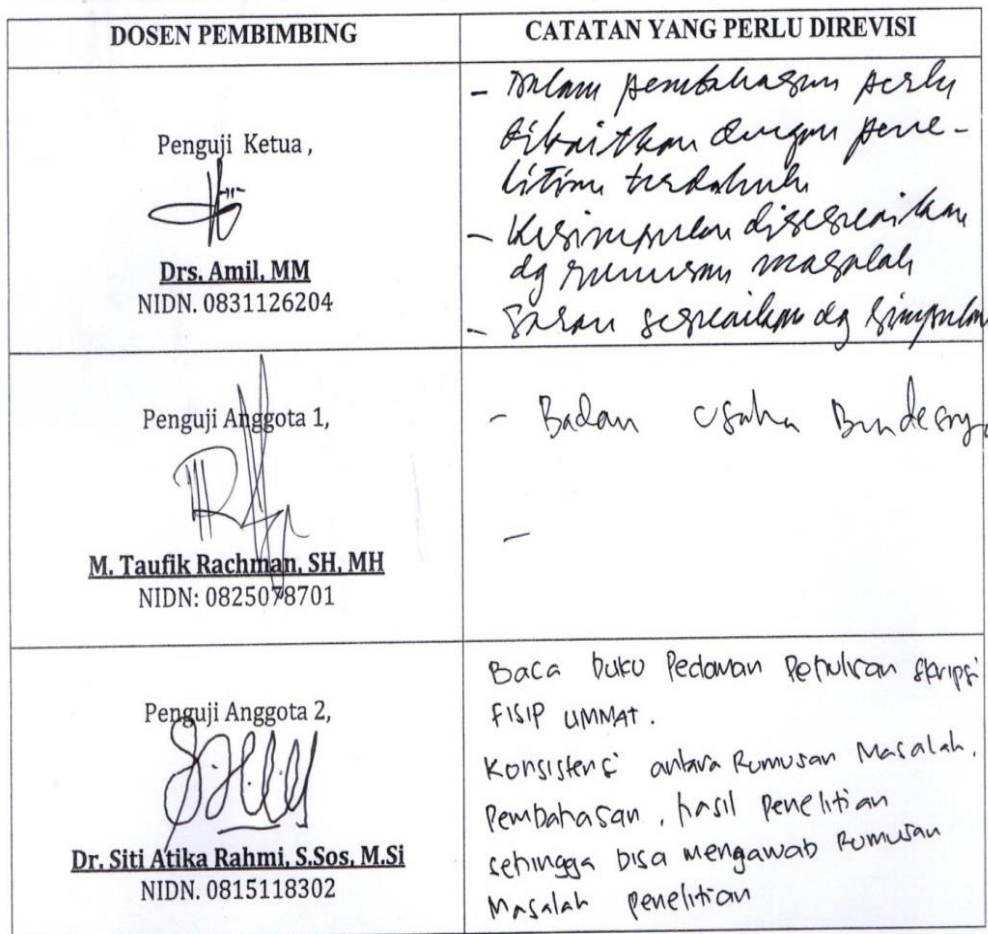 DOSEN PEMBIMBING
CATATAN YANG PERLU DIREVISI
Penguji Ketua,
Drs. Amil, MM
NIDN. 0831126204
- Dalam pembahasan perlu
dikaitkan dengan pene-
litian terdahulu
- Kesimpulan disesuaikan
dg rumusan masalah
- Saran sesuaikan dg simpulan
Penguji Anggota 1,
M. Taufik Rachman, SH, MH
NIDN: 0825078701
- Badan Usaha
-
Penguji Anggota 2,
Dr. Siti Atika Rahmi, S.Sos, M.Si
NIDN. 0815118302
Baca buku Pedoman Penulisan Skripsi
FISIP UMMAT.
Konsistensi antara Rumusan Masalah,
Pembahasan, hasil penelitian
sehingga bisa mengawab Rumusan
Masalah penelitian